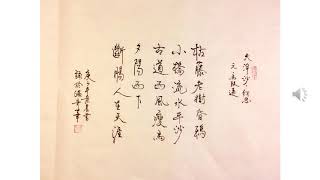 天淨沙 秋思
元 馬致遠
枯藤老樹昏鴉
小橋流水平沙
古道西風瘦馬
夕陽西下
斷腸人在天涯